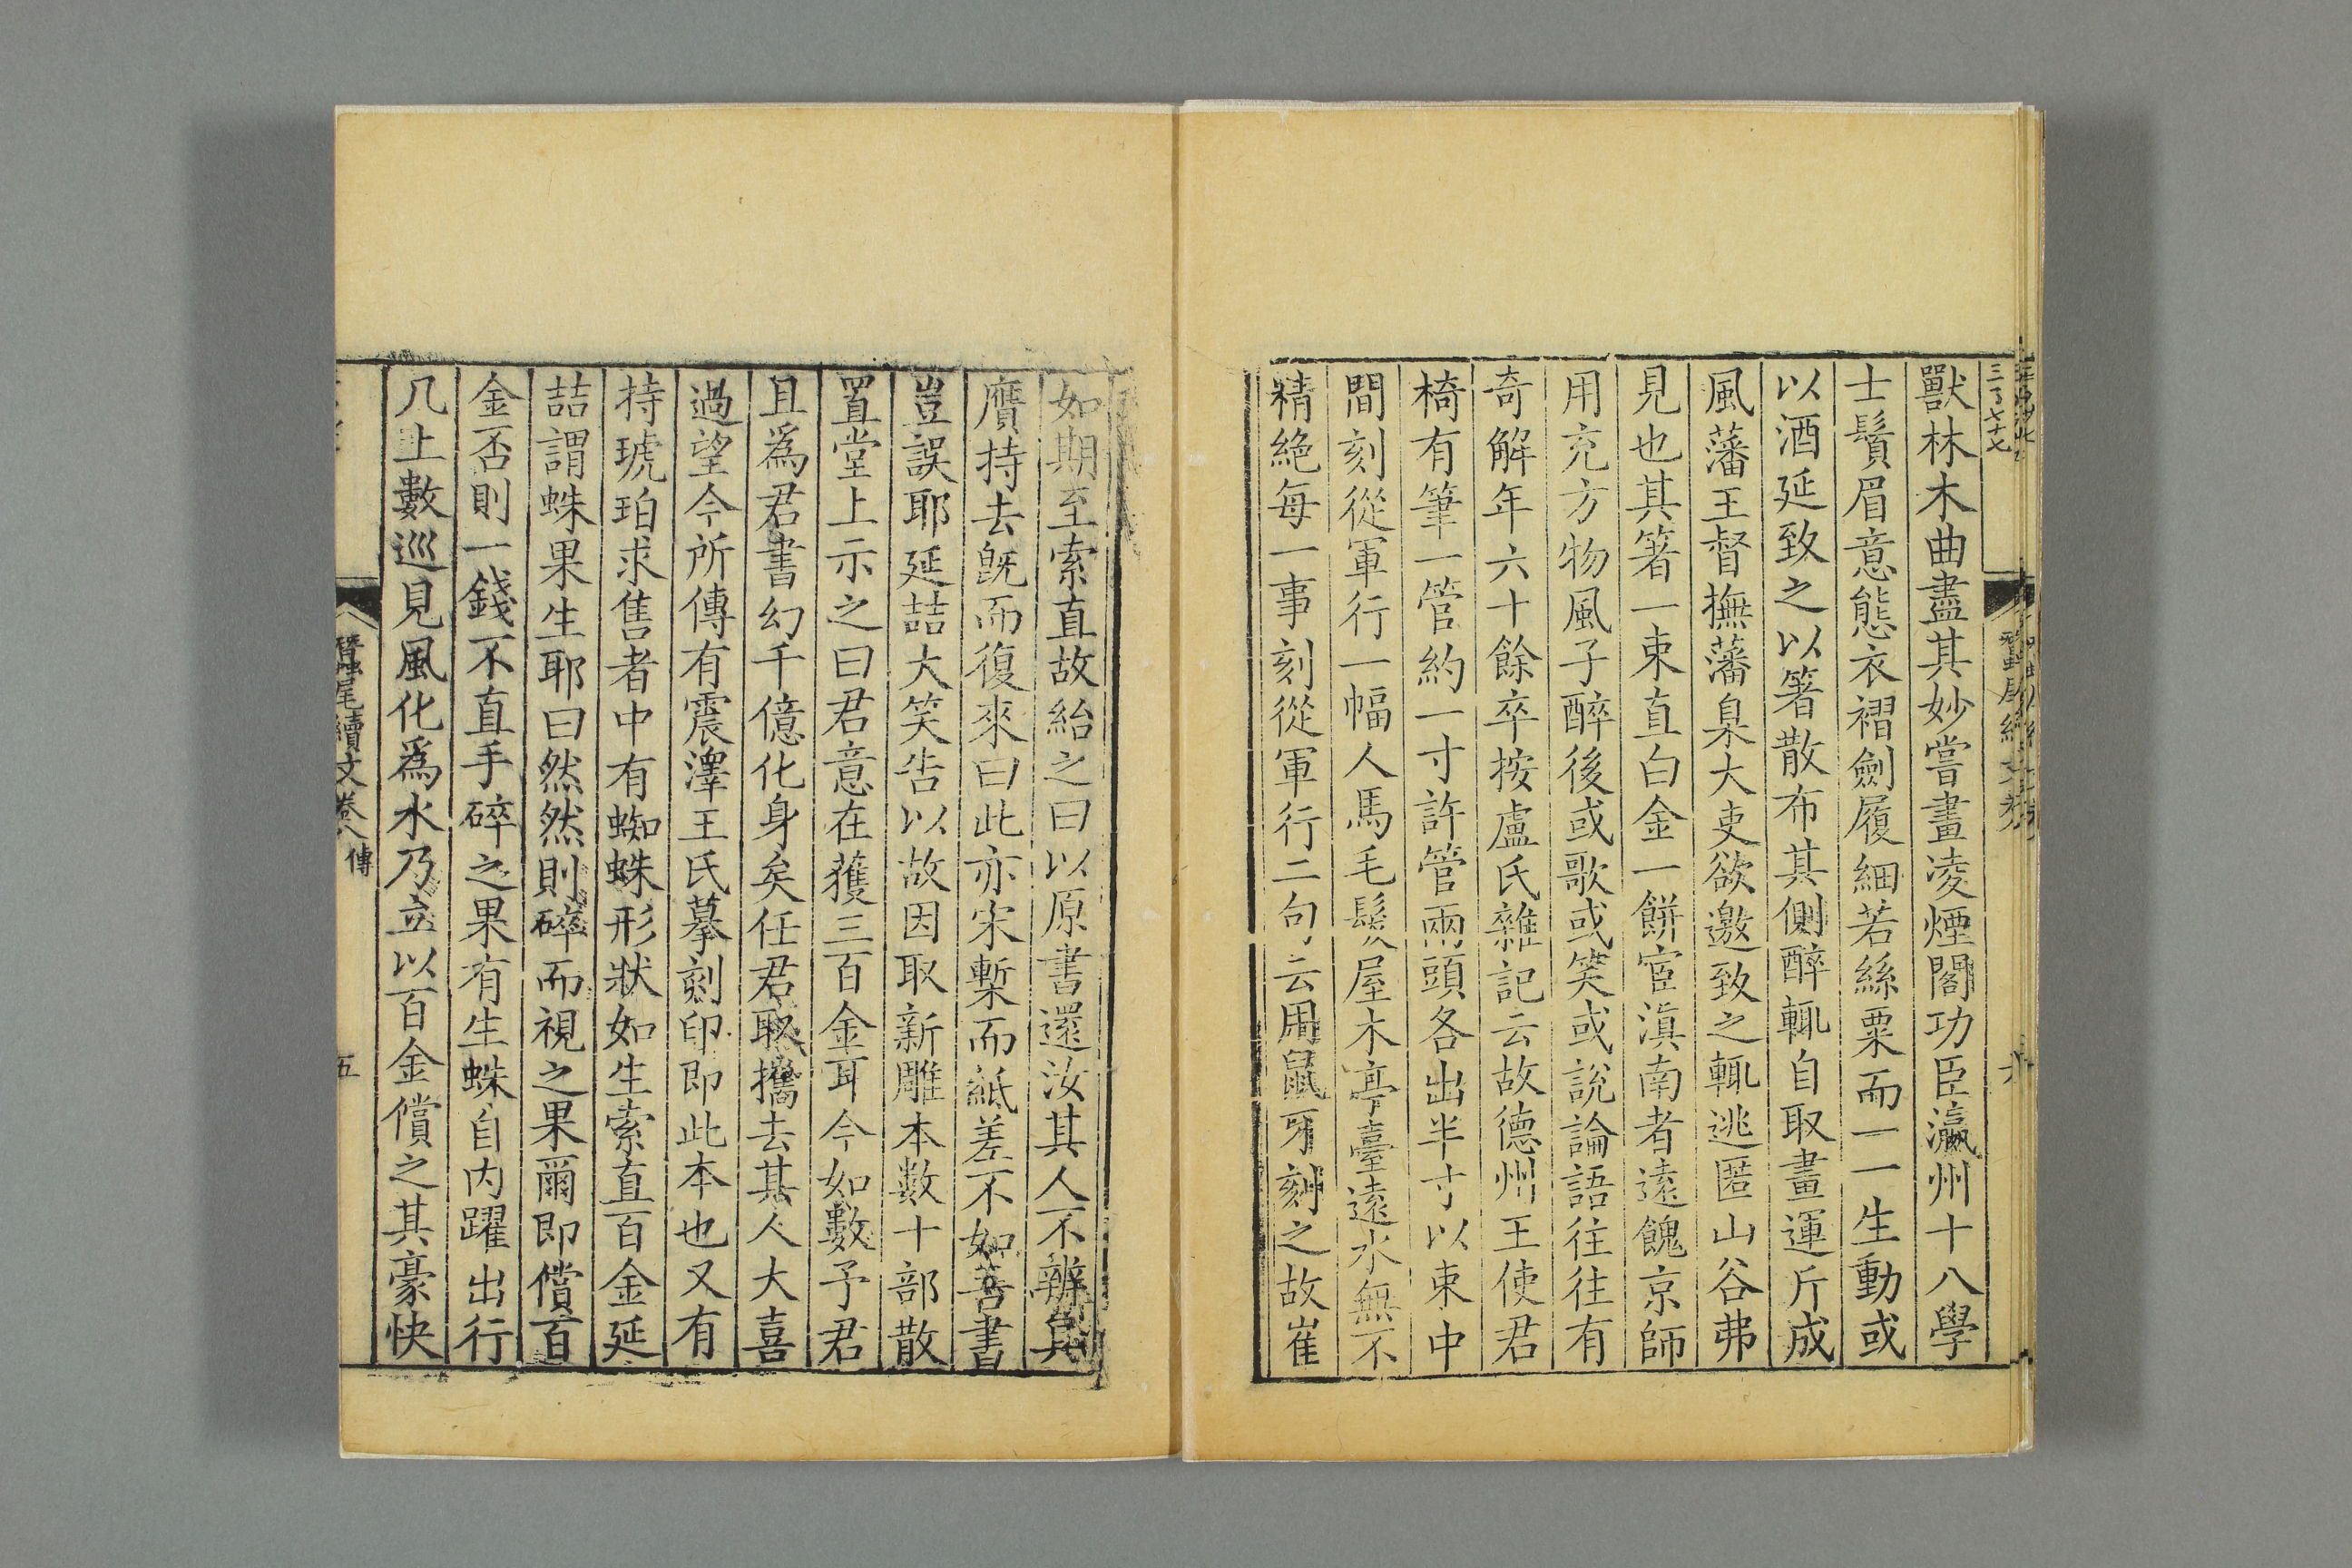 獸林木曲盡其妙嘗畫凌煙閣功臣瀛州十八學
士鬢眉意態衣褶劍履細若絲粟而一一生動或
以酒延致之以箸散布其側醉輒自取畫運斤成
風藩王督撫藩臬大吏欲邀致之輒逃匿山谷弗
見也其箸一束直白金一餅宦滇南者遠餽京師
用充方物風子醉後或歌或笑或說論語往往有
奇解年六十餘卒按盧氏雜記云故德州王使君
椅有筆一管約一寸許管兩頭各出半寸以來中
間刻從軍行一幅人馬毛鬃屋木亭臺遠水無不
精絶每一事刻從軍行二句云用鼠牙刻之故崔
如期至索直故紿之曰以原書還汝其人不辨其
贋持去旣而復來曰此亦宋槧而紙差不如善書
豈誤耶延喆大笑告以故因取新雕本數十部散
置堂上示之曰君意在獲三百金耳今如數予君
且爲君書幻千億化身矣任君取攜去其人大喜
過望今所傳有震澤王氏摹刻印即此本也又有
持琥珀求售者中有蜘蛛形狀如生索直百金延
喆謂蛛果生耶曰然然則碎而視之果爾即償百
金否則一錢不直手碎之果有生蛛自内躍出行
几上數巡見風化爲水乃立以百金償之其豪快
蠶尾續文卷八 傳
五